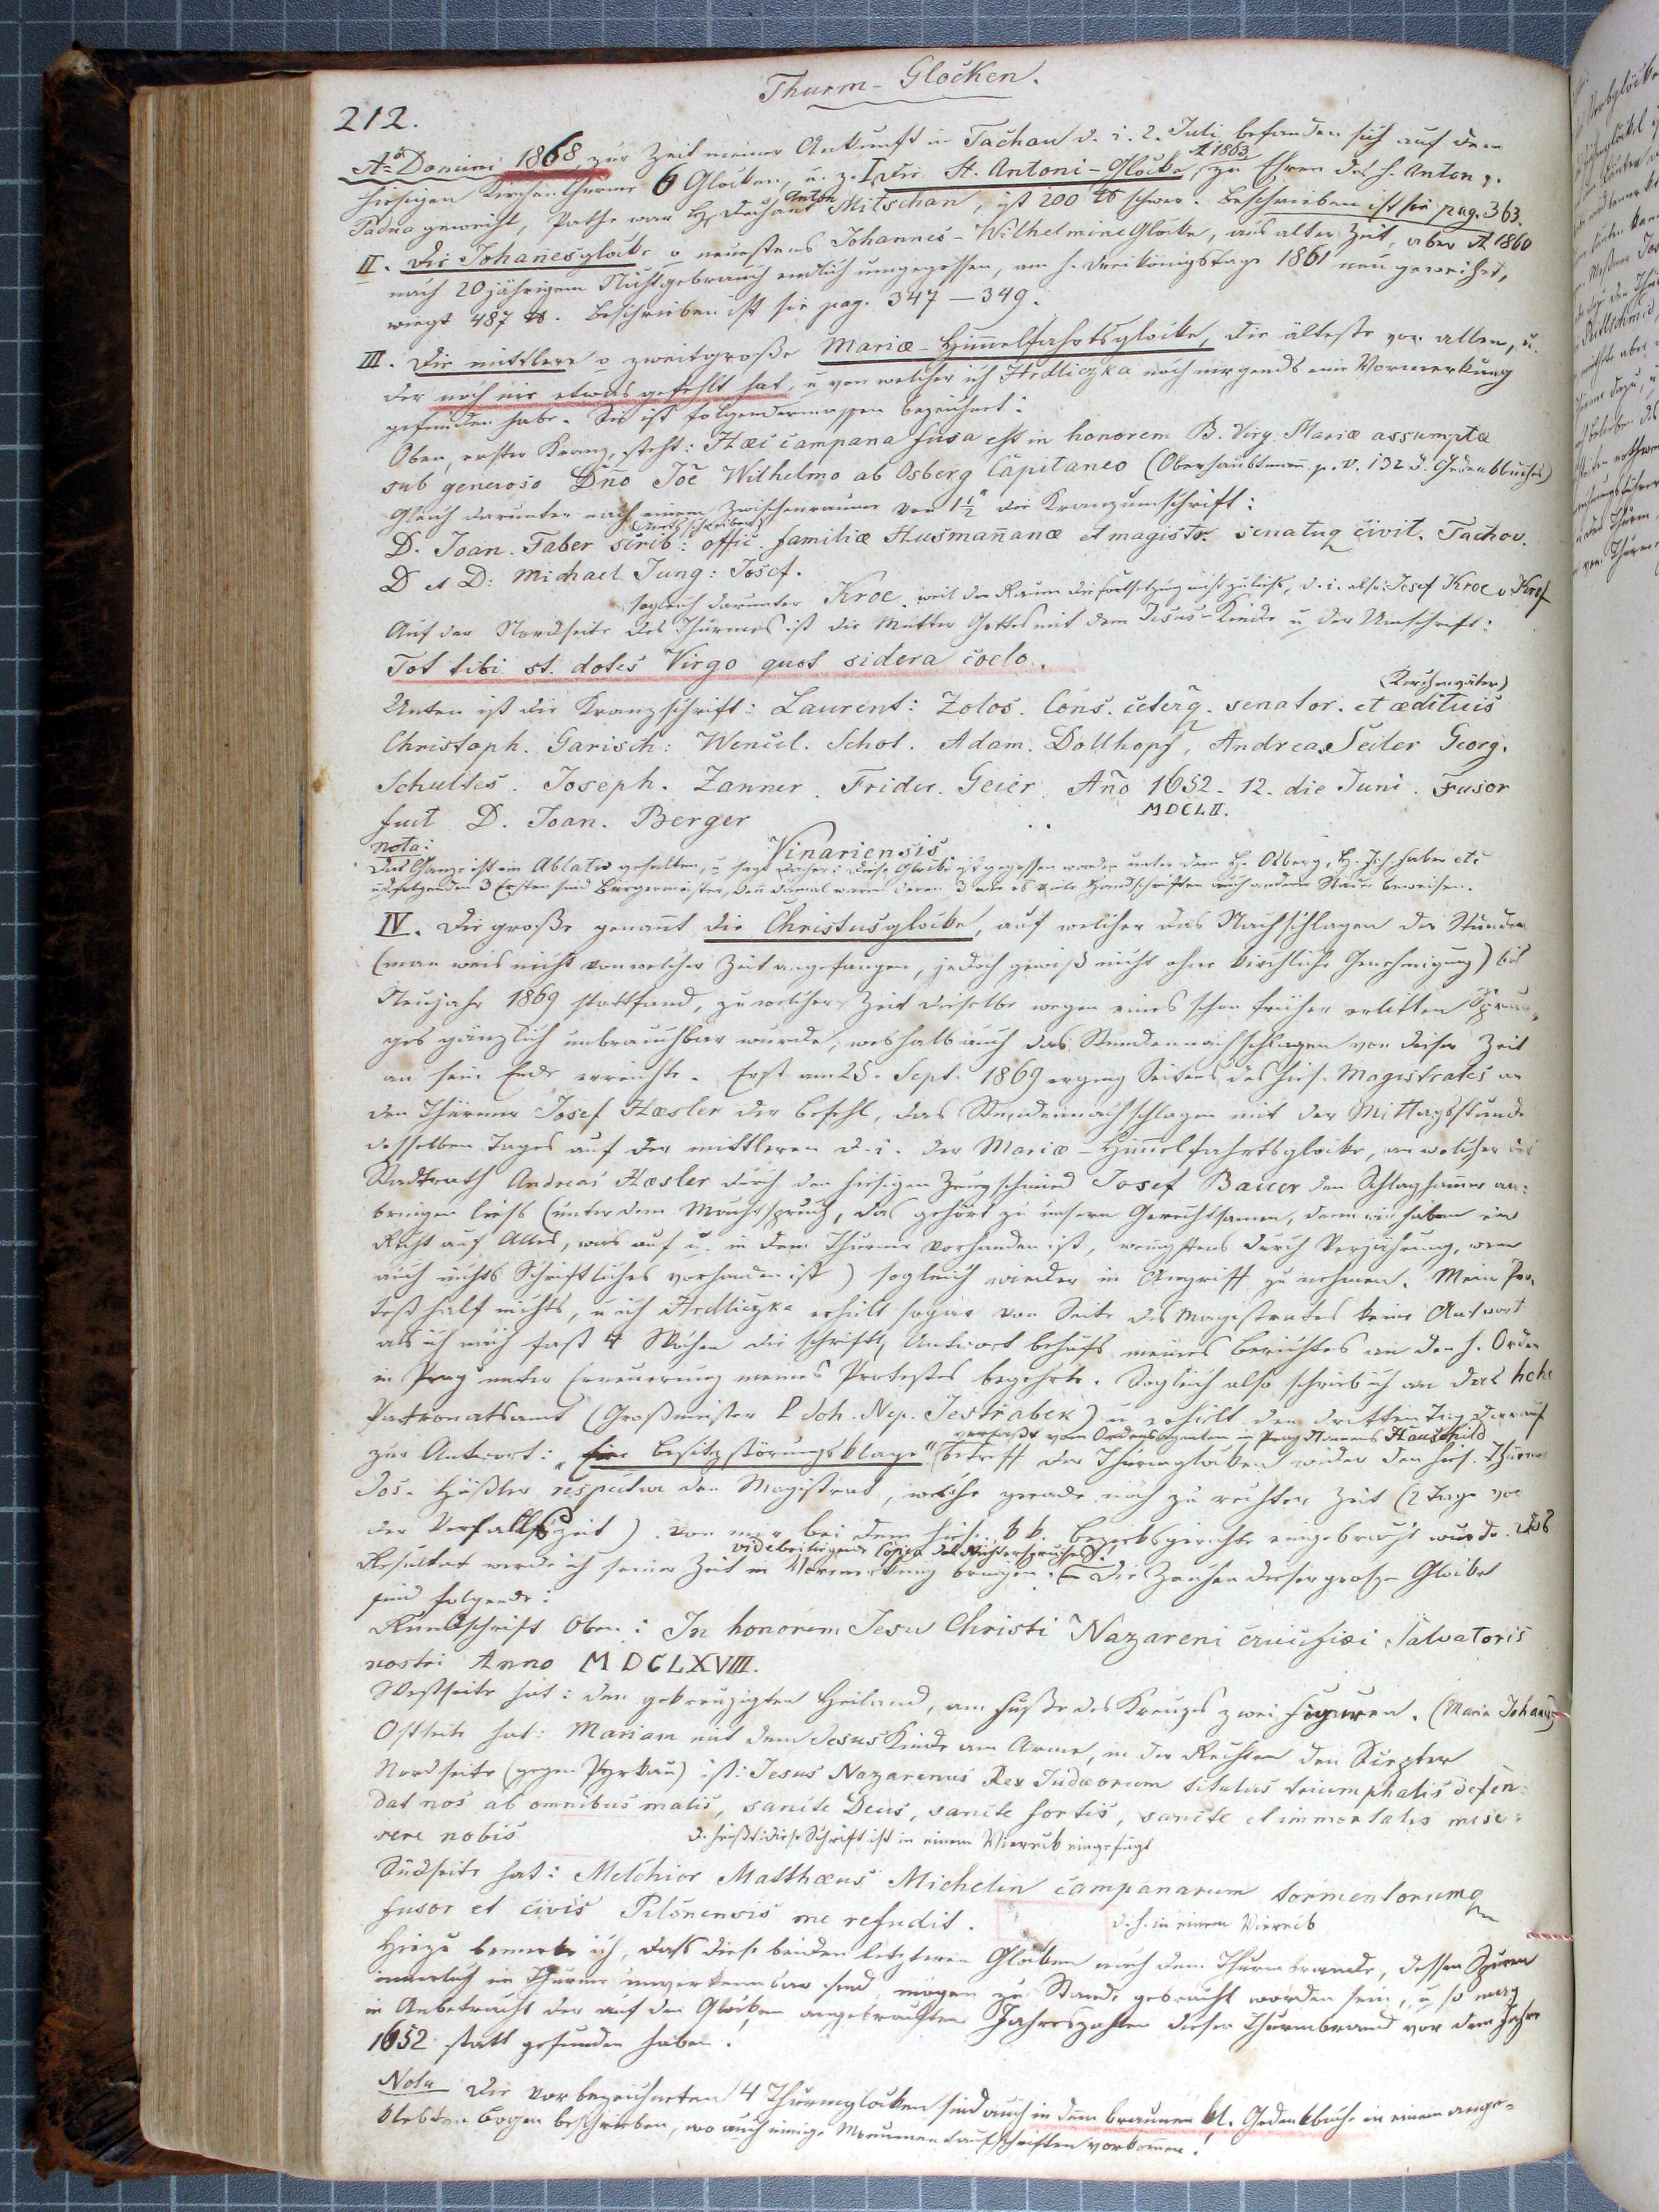 Thurm-Glocken.
212.
Ao Domini 1868 zur Zeit meiner Ankunft in Tachau d. i. 2. Juli befanden sich auf dem
hiesigen Kirchenthurme 6 Glocken, u. z. I. die St. Antoni-Glocke, A 1863 zu Ehren des h. Anton v.
Padua geweiht, Pathe war H. Dechant Anton Mitschan, ist 200 ℔ schwer. Beschrieben ist sie pag. 363.
II. Die Johañesglocke o neuestens Johannes-Wilhelmine Glocke, aus alter Zeit, aber A 1860
nach 20jährigem Nichtgebrauch endlich umgegossen, am h. Dreikönigstage 1861 neu geweihet,
wiegt 487 ℔. Beschrieben ist sie pag. 347 – 349.
III. Die mittlere o zweitgroße Mariæ-Himmelfahrtsglocke, die älteste von allen, u.
der noch nie etwas gefehlt hat, u von welcher ich Hrdliczka noch nirgends eine Vormerkung
gefunden habe. Sie ist folgendermassen bezeichnet:
Oben, erster Kranz, steht: Hæc campana fusa est in honorem B. Virg. Mariæ assumptæ
sub generoso Dño Joẽ Wilhelmo ab Osberg Capitaneo (Oberhauptmañ p. v. 132 d. Gedenkbuches)
Gleich darunter nach einem Zwischenraume von 1½" die Kranzumschrift:
D. Joan. Faber scrib: offic. familiæ Husmañanæ et magistr. senatuq civit. Tachov.
D et D: Michael Jung: Josef.
sogleich darunter Kroe, weil der Raum die Fortsetzung nicht zuließ, d. i. also: Josef Kroe o Kref
Auf der Nordseite des Thurmes ist die Mutter Gottes mit dem Jesus-Kinde u der Umschrift:
Tot tibi st. dotes Virgo quot sidera coelo.
(Kirchenväter)
Unten ist die Kranzschrift: Laurent: Zolos. Cons. ceterq. senator. et ædituis
Christoph. Garisch: Wencel. Schol. Adam. Dollhopf, Andreas Seiler Georg.
Schultes. Joseph. Zanner. Frider. Geier. Año 1652. 12. die Juni. Fusor
MDCLII.
fuit D. Joan. Berger
Vinariensis
nota:
Das Ganze ist im Ablativ gehalten, u sagt daher: diese Glocke ist gegossen worden unter dem H. Osberg, H. Joh. Faber etc
folgenden 3 Ersten sind Bürgermeister, deñ damal waren deren 3 wie es Handschriften auch anderer Städte beweisen.
IV. Die große genañt die Christusglocke, auf welcher das Nachschlagen der Stunden
(man weis nicht von welcher Zeit angefangen, jedoch gewiß nicht ohne kirchliche Genehmigung) bis
Neujahr 1869 stattfand, zu welcher Zeit dieselbe wegen eines schon früher erlitten Sprun-
ges gänzlich unbrauchbar wurde, weshalb auch das Stundennachschlagen von dieser Zeit
an sein Ende erreichte. Erst am 25. Sept. 1869 erging Seitens des hies. Magistrates an
den Thürmer Josef Hæsler der Befehl, das Stundennachschlagen mit der Mittagsstunde
desselben Tages auf der mittleren d. i. der Mariæ-Himmelfahrtsglocke, an welcher der
Stadtrath Andreas Hæsler durch den hiesigen Zeugschmied Josef Bauer den Schlaghammer an-
bringen ließ (unter dem Machtspruch, das gehört zu unsern Gerechtsamen, denn wir haben ein
Recht auf Alles, was auf u. in dem Thurme vorhanden ist, wenigstens durch Verjährung, wenn
auch nichts Schriftliches vorhanden ist) sogleich wieder in Angriff zu nehmen. Mein Pro-
test half nichts, u ich Hrdliczka erhielt sogar von Seite des Magistrates keine Antwort
als ich nach fast 4 Wochen die schriftl. Antwort behufs meines Berichtes an den h. Orden
in Prag unter Erneuerung meines Protestes begehrte. Sogleich also schrieb ich an das hohe
Patronatsamt (Großmeister P Joh. Nep. Jestřabek) u erhielt den dritten Tag darauf
verfaßt vom Ordensagenten in Prag Namens Hauschild
zur Antwort: „Eine Besitzstörungsklage" (betreff der Thurmglocken) wider den hies. Thürmer
Jos. Häßler respective den Magistrat, welche gerade noch zu rechten Zeit (2 Tage vor
der Verfallszeit) von mir bei dem hies. k k. Bezirksgerichte eingebracht wurde. Das
vide beiliegende Copia des Richterspruches!
Resultat werde ich seiner Zeit in Vormerkung bringen. – Die Zeichen dieser großen Glocke
sind folgende:
Rundschrift Oben: In honorem Jesu Christi Nazareni crucifixi Salvatoris
nostri Anno MDCLXVIII.
Westseite hat: den gekreuzigten Heiland, am Fuße des Kreuzes zwei Figuren. (Maria Johañes)
Ostseite hat: Mariam mit dem Jesus Kinde am Arme, in der Rechten den Scepter
Nordseite (gegen Purkau) ist: Jesus Nazarenus Rex Judæorum titulus triumphalis defen-
dat nos ab omnibus malis, sancte Deus, sancte fortis, sancte et immortalis mise-
rere nobis
d. heißt: diese Schrift ist in einem Viereck eingefügt
Südseite hat: Melchior Matthæus Michelin campanarum tormentorumq
fusor et civis Pilsnensis me refudit.
d. h. in einem Viereck
Hiezu bemerke ich, daß diese beiden letzteren Glocken nach dem Thurmbrande, dessen Spuren
innerlich im Thurme unverkennbar sind, mögen zu Stande gebracht worden sein, u so mag
in Anbetracht der auf den Glocken angebrachten Jahreszahlen dieser Thurmbrand vor dem Jahre
1652 statt gefunden haben.
Nota Die vorbezeichneten 4 Thurmglocken sind auch in dem braunen kl. Gedenkbuche in einem ange-
klebten Bogen beschrieben, wo auch einige Monumentaufschriften vorkommen!